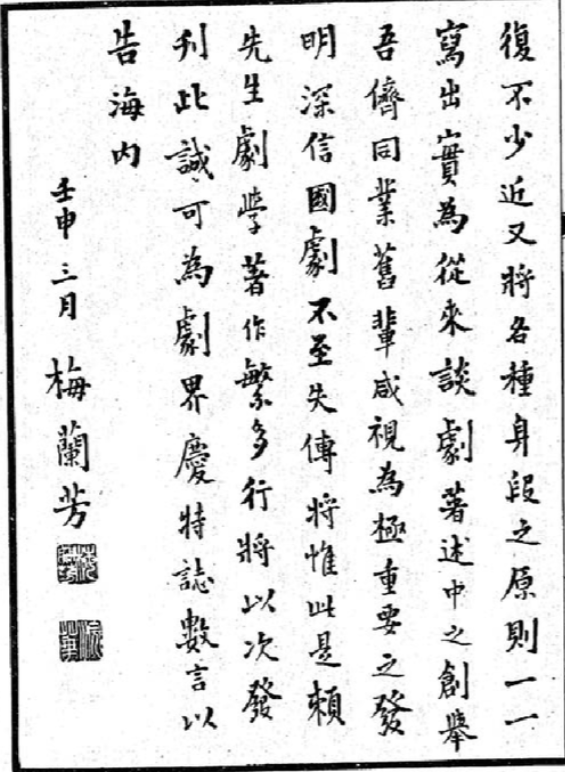 復不少近又將各種身段之原則一一
寫出實為從來談劇著述中之創舉
吾儕同業舊輩咸視為極重要之發
明深信國劇不至失傳將惟此是賴
先生劇學著作繁多行將以次發
刊此誠可為劇界慶特誌數言以
告海内
壬申三月 梅蘭芳